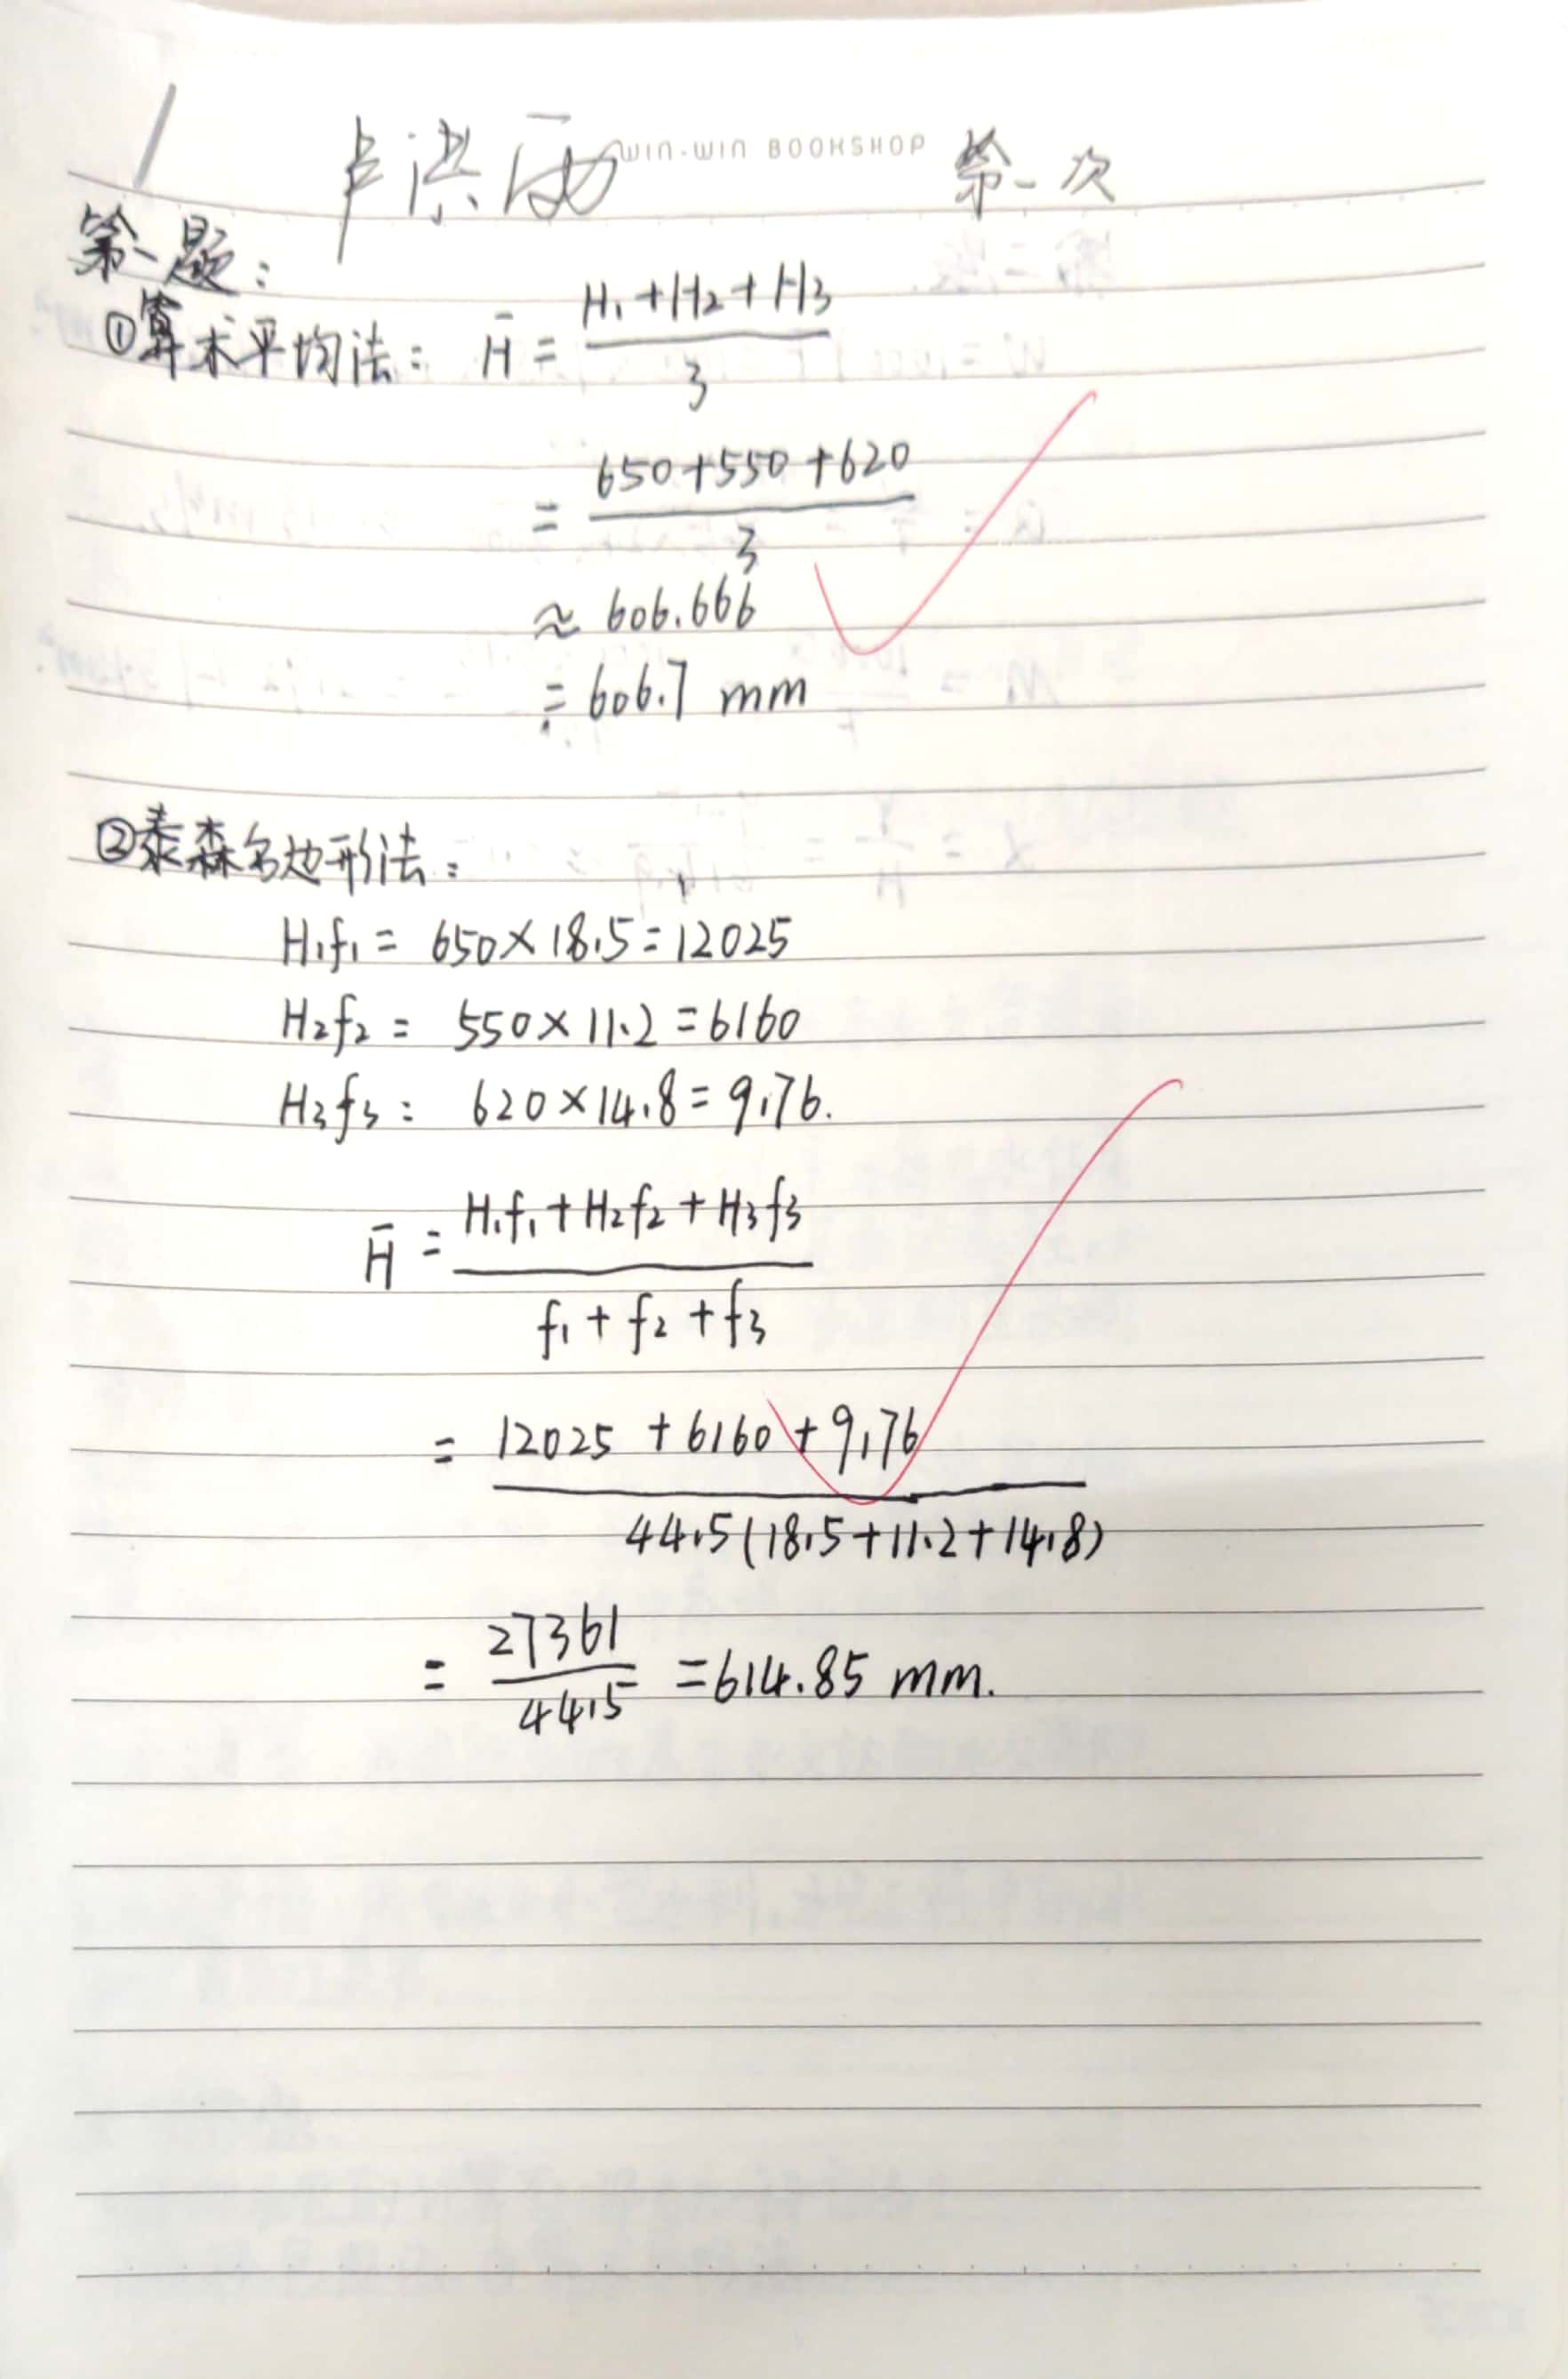 卢洪 WIN-WIN BOOKSHOP 第一次
第一题:
①算术平均法: H̄ = (H₁+H₂+H₃)/3
= (650+550+620)/3
≈ 606.666
= 606.7 mm
②泰森多边形法:
H₁f₁ = 650×18.5=12025
H₂f₂ = 550×11.2=6160
H₃f₃ = 620×14.8=9176.
H̄ = (H₁f₁+H₂f₂+H₃f₃)/(f₁+f₂+f₃)
= (12025+6160+9176)/44.5(18.5+11.2+14.8)
= 27361/44.5 =614.85 mm.